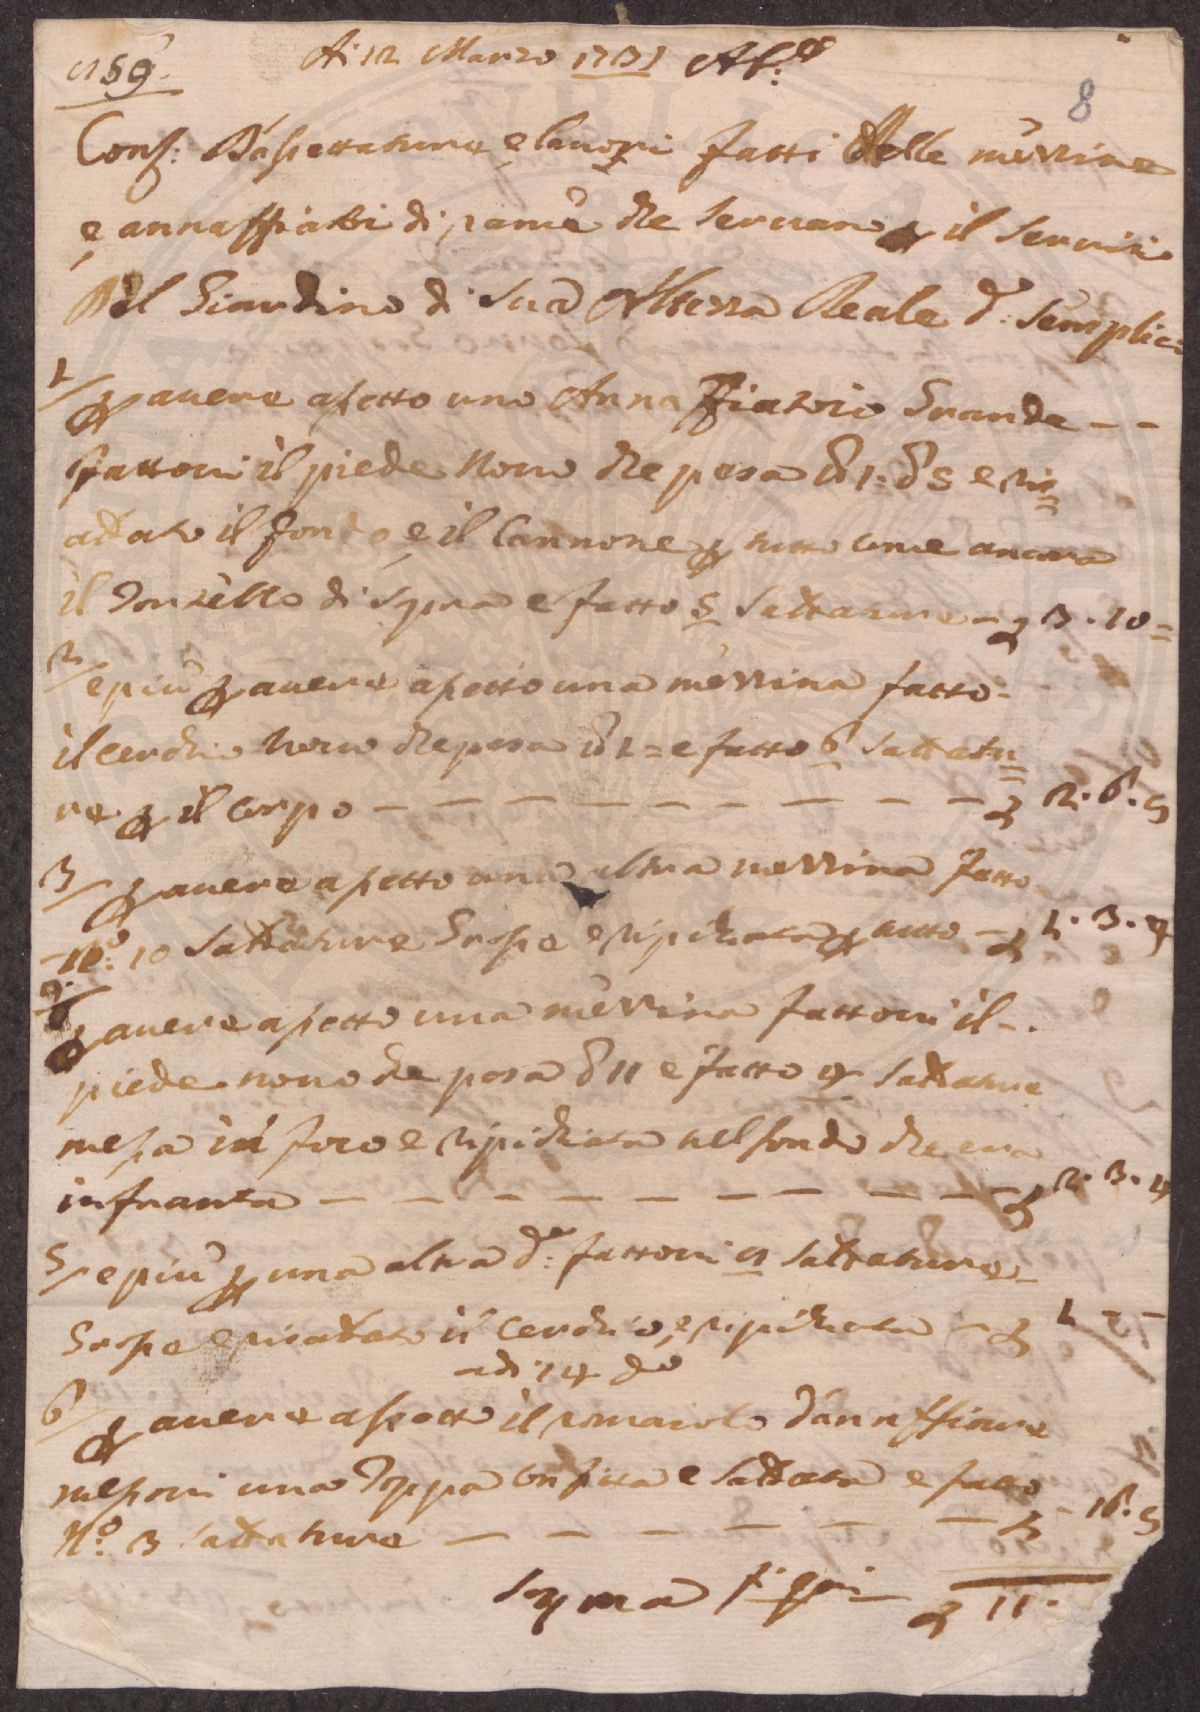 159.
A: 12 Marzo 1731 Ab:
8
Conf: Rasettature e lauori fatti delle mezzine
e annaffiatoi di rame che seruano p il seruizio
Del Giardino di Sua Altezza Reale d: semplici
1/ p auere asetto uno Annaffiatoio Grande - -
fattoui il piede Nouo che pesa 1: 5 e ri=
adato il fondo e il Cannone p tutto come ancora
il Toncello di sopra e fatto 5 saldature - £ 3. 10 =
2/ e piu p auere asetto una mezzina fatto -
il cerchio nouo che pesa 1 = e fatto 6 saldatu=
re p il corpo - - - - - - - - - - £ 2. 6. 5
3/ p auere asetto una altra mezzina fatto
N.o: 10 saldature Grose e ripichiata p tutto - £ 1. 3. 4
4. p auere asetto una mezzina fattoui il - .
piede nouo che pesa 11 e fatto 4 saldature
messa in foco e ripichiata nel fondo che era
infranta - - - - - - - - - - £ 2. 3. 4
5/ e piu p una altra d: fattoui saldature -
Grose e riadatato il cerchio, e ripichiata - £ 1 - -
adi 14 do
6/ p auere asetto il romaiolo d'anaffiare
messoui una Toppa confitta e saldata e fatto
N.o: 3 saldature - - - - - - £ - 16. 5
Somma £ 11.